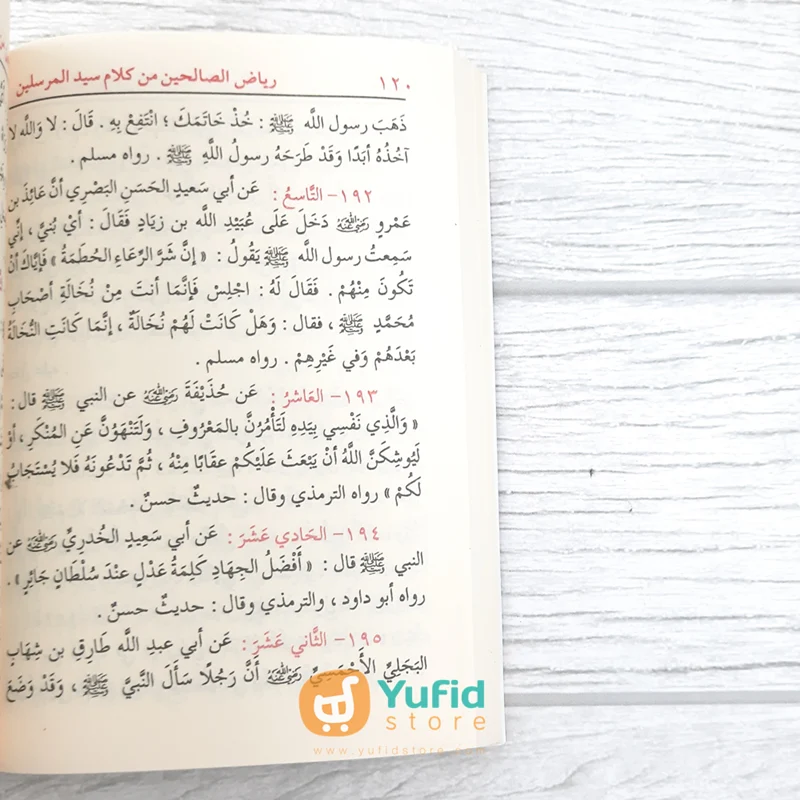 ١٢٠ رياض الصالحين من كلام سيد المرسلين
ذَهَبَ رسول الله ﷺ : خُذْ خَاتَمَكَ ؛ انْتَفِعْ بِهِ . قَالَ : لا وَاللَّه لا
آخُذُهُ أَبَدًا وَقَدْ طَرَحَهُ رسولُ اللَّهِ ﷺ . رواه مسلم .
١٩٢- التَّاسِعُ : عَن أبي سَعيدٍ الحَسَنِ البَصْرِي أنَّ عَائِذَ بن
عَمْروٍ رَضِيَ اللَّهُ عَنْهُ دَخَلَ عَلَى عُبَيْدِ اللَّه بن زيَادٍ فَقَالَ : أيْ بُنَيَّ ، إنِّي
سَمِعتُ رسول الله ﷺ يَقُولُ : « إنَّ شَرَّ الرِّعَاءِ الحُطَمَةُ » فَإيَّاكَ أنْ
تَكُونَ مِنْهُمْ . فَقَالَ لَهُ : اجْلِسْ فَإِنَّمَا أنتَ مِنْ نُخَالَةِ أَصْحَابِ
مُحَمَّدٍ ﷺ ، فقال : وَهَلْ كَانَتْ لَهُمْ نُخَالَةٌ ، إنَّمَا كَانَتِ النُّخَالَةُ
بَعْدَهُمْ وَفي غَيْرِهِمْ . رواه مسلم .
١٩٣- العَاشرُ : عَن حُذَيْفَةَ رَضِيَ اللَّهُ عَنْهُ عن النبي ﷺ قال :
« وَالَّذِي نَفْسِي بِيَدِهِ لَتَأْمُرُنَّ بالمَعْرُوفِ ، وَلَتَنْهَوُنَّ عَنِ المُنْكَرِ ، أوْ
لَيُوشِكَنَّ اللَّهُ أنْ يَبْعَثَ عَلَيْكُمْ عقَابًا مِنْهُ ، ثُمَّ تَدْعُونَهُ فَلا يُسْتَجَابُ
لَكُمْ » رواه الترمذي وقال : حديثٌ حسنٌ .
١٩٤- الحَادي عَشَرَ : عَن أبي سَعِيدٍ الخُدرِيِّ رَضِيَ اللَّهُ عَنْهُ عن
النبي ﷺ قال : « أَفْضَلُ الجِهَادِ كَلِمَةُ عَدْلٍ عندَ سُلْطَانٍ جَائِرٍ » .
رواه أبو داود ، والترمذي وقال : حديثٌ حسنٌ .
١٩٥- الثَّاني عَشَرَ : عَن أبي عبدِ الله طَارِقِ بن شِهَابٍ
البَجَلِيِّ الأَحْمَسِيِّ رَضِيَ اللَّهُ عَنْهُ أنَّ رَجُلًا سَأَلَ النَّبيَّ ﷺ ، وَقَدْ وَضَعَ
Yufid
store
www.yufidstore.com